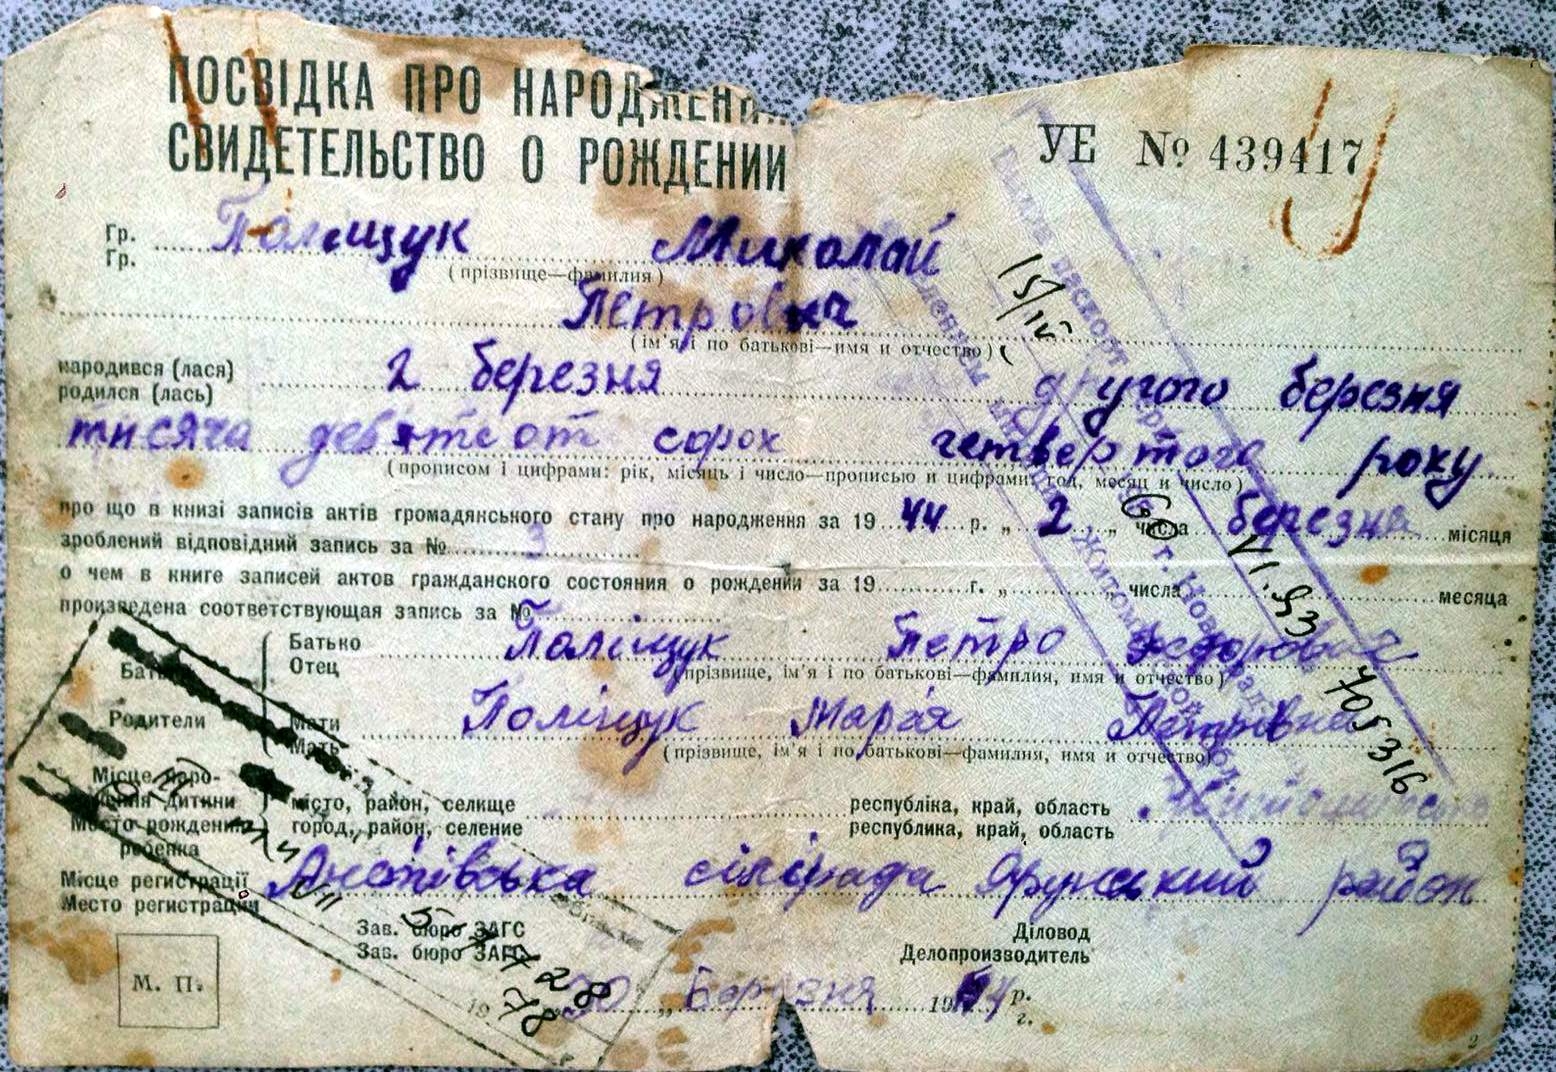 ПОСВІДКА ПРО НАРОДЖЕННЯ
СВИДЕТЕЛЬСТВО О РОЖДЕНИИ
УЕ № 439417
Гр. Поліщук Миколай
Гр.
(прізвище—фамилия)
Петрович
(ім'я і по батькові—имя и отчество)
15/IV
народився (лася) 2 березня другого березня
родился (лась)
тисяча девятсот сорок четвертого року
(прописом і цифрами: рік, місяць і число—прописью и цифрами: год, месяц и число)
про що в книзі записів актів громадянського стану про народження за 19 44 р. „ 2 „ числа березня місяця
зроблений відповідний запис за № 3
о чем в книге записей актов гражданского состояния о рождении за 19 г. „ „ числа месяца
произведена соответствующая запись за №
Батько Поліщук Петро Федорович
Отец
(прізвище, ім'я і по батькові—фамилия, имя и отчество)
Родители
Мати Поліщук Марія Петрівна
Мать
(прізвище, ім'я і по батькові—фамилия, имя и отчество)
Місце народження дитини місто, район, селище республіка, край, область
Место рождения ребенка город, район, селение республика, край, область
Місце регистрації сілірада район
Место регистрации
Зав. бюро ЗАГС Діловод
Зав. бюро ЗАГС Делопроизводитель
М. П.
30 „ Березня 1944 р.
г.
паспорт
60 г.
VI. 93
705316
728
78
2